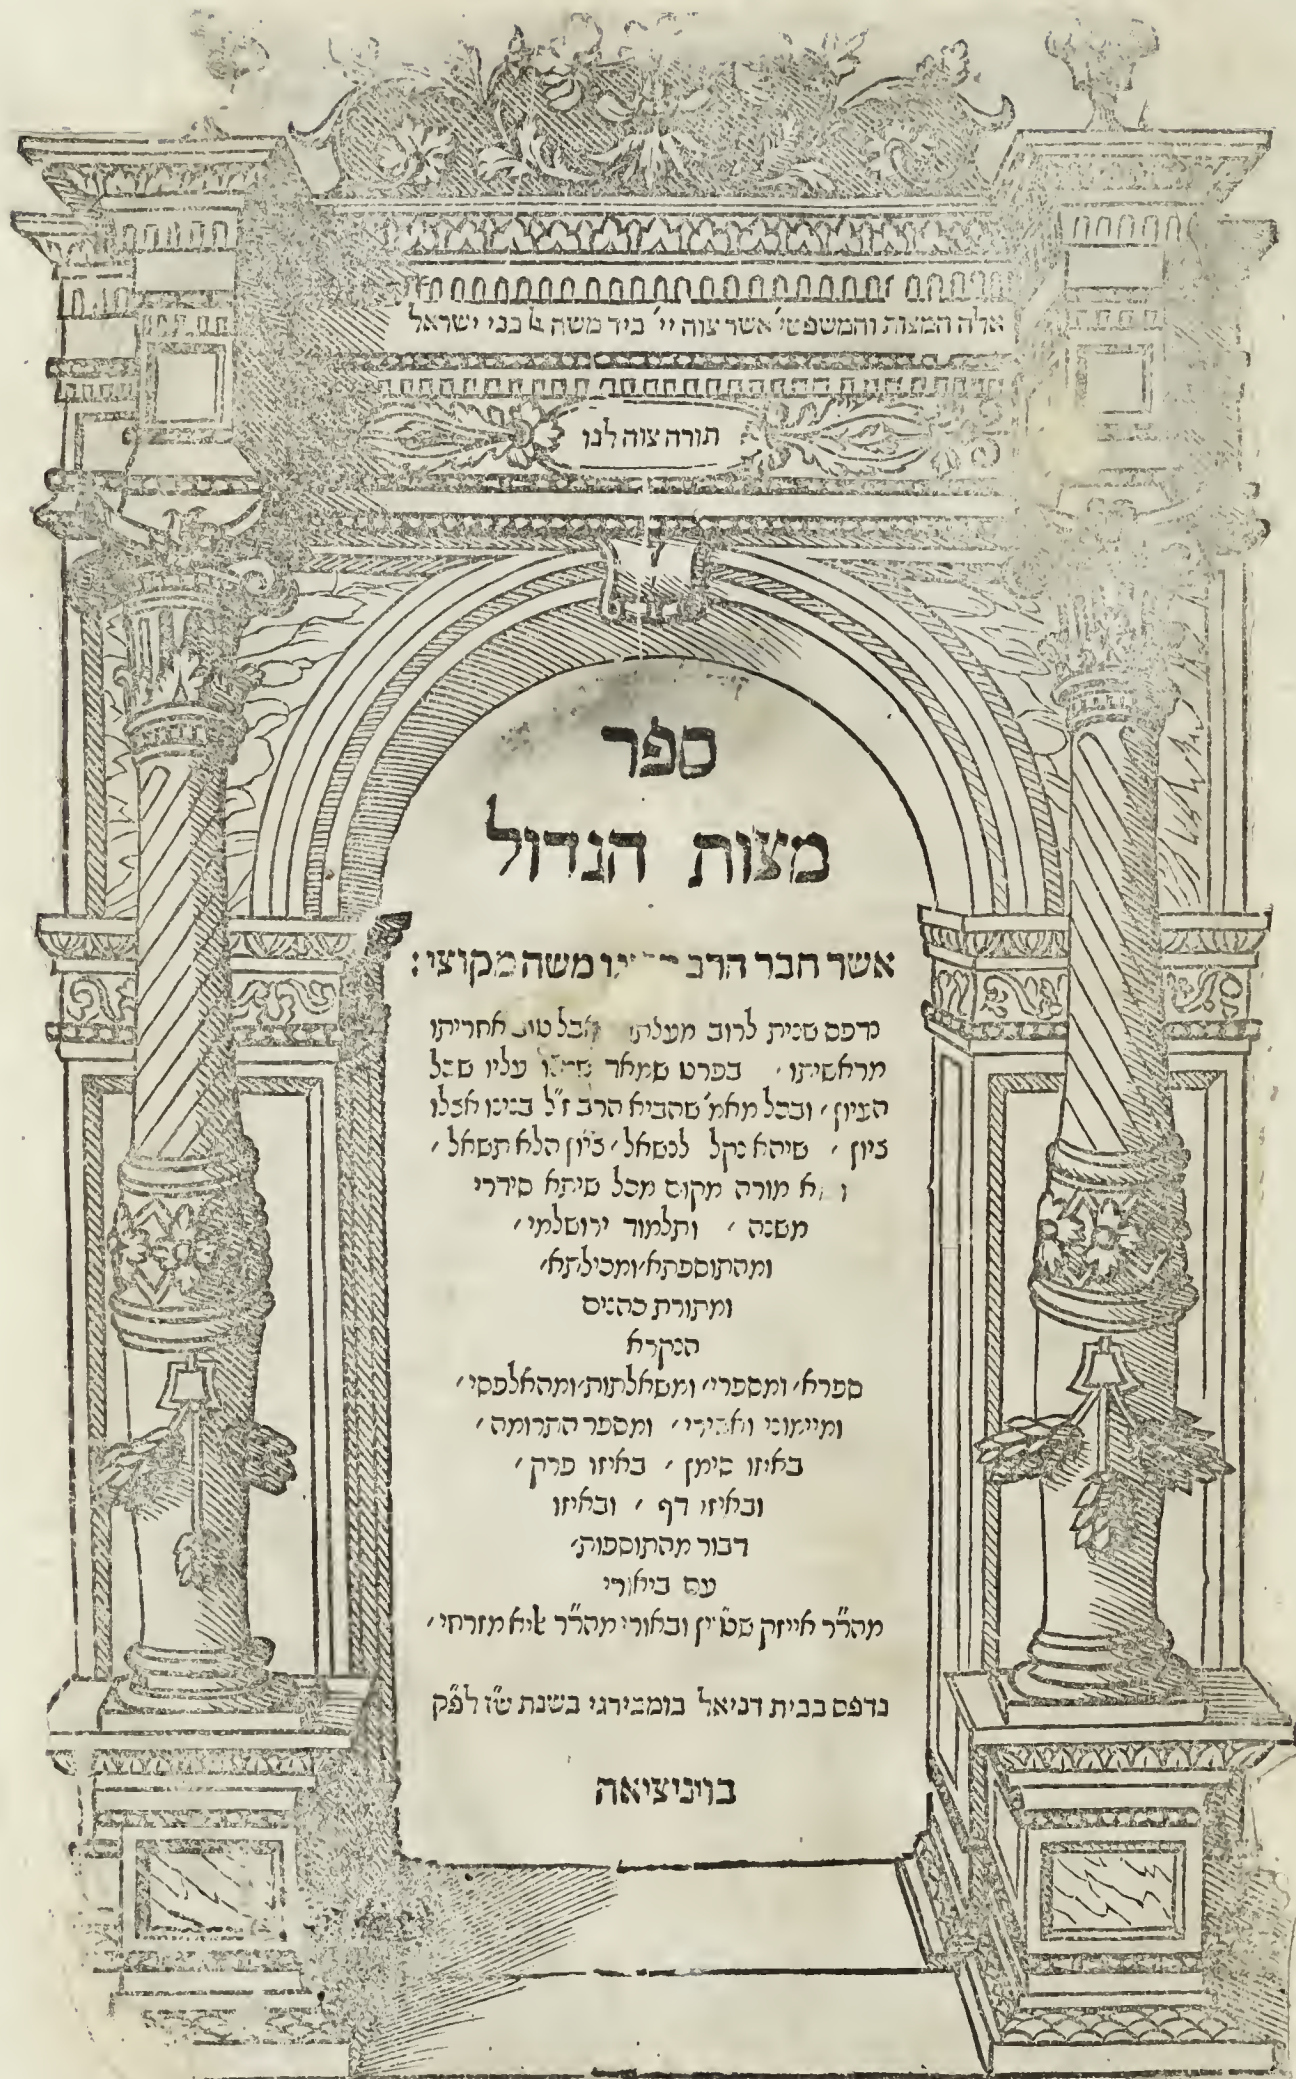 אלה המצות והמשפטי' אשר צוה יי' ביד משה אל בני ישראל
תורה צוה לנו
ספר
מצות הגדול
אשר חבר הרב משה מקוצי :
נדפס שנית לרוב מעלתו אבל טוב אחריתו
מראשיתו בפרט שמאר עליו שכל
הציון ובכל מאמ' שהביא הרב ז"ל בנינו אצלו
ציון שיהא נקל לנשאל ציון הלא תשאל
מורה מקום מכל שיתא סידרי
משנה ותלמוד ירושלמי
ומהתוספתא ומכילתא
ומתורת כהנים
הנקרא
ספרא ומספרי ומשאלתות ומהאלפסי
ומיימוני ומספר התרומה
באיזו סימן באיזו פרק
ובאיזו דף ובאיזו
דבור מהתוספות
עם ביאורי
מהר"ר אייזק שטיין ובאורי מהר"ר אליא מזרחי
נדפס בבית דניאל בומבירגי בשנת ש"ז לפ"ק
בויניציאה